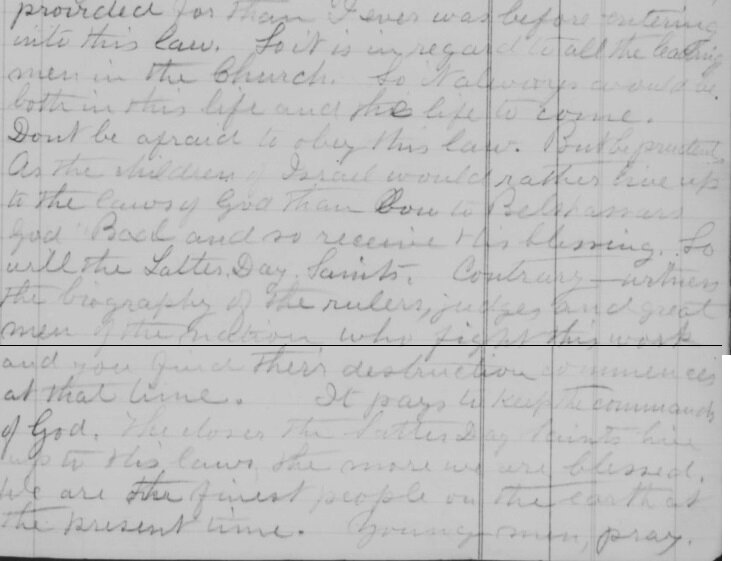 provided for than I ever was before entering
into this law. So it is in regard to all the leading
men in the Church. So it always would be
both in this life and the life to come.
Dont be afraid to obey this law. But be prudent.
As the children of Israel would rather live up
to the laws of God than bow to Belshassars
God Baal and so receive His blessing. So
will the Latter Day Saints. Contrary - witness
the biography of the rulers, judges and great
men of the nation who fight this work
and you find theirs destruction commences
at that time. It pays to keep the commands
of God. The closer the Latter Day Saints live
up to His laws the more we are blessed.
We are the finest people on the earth at
the present time. Young men, pray.